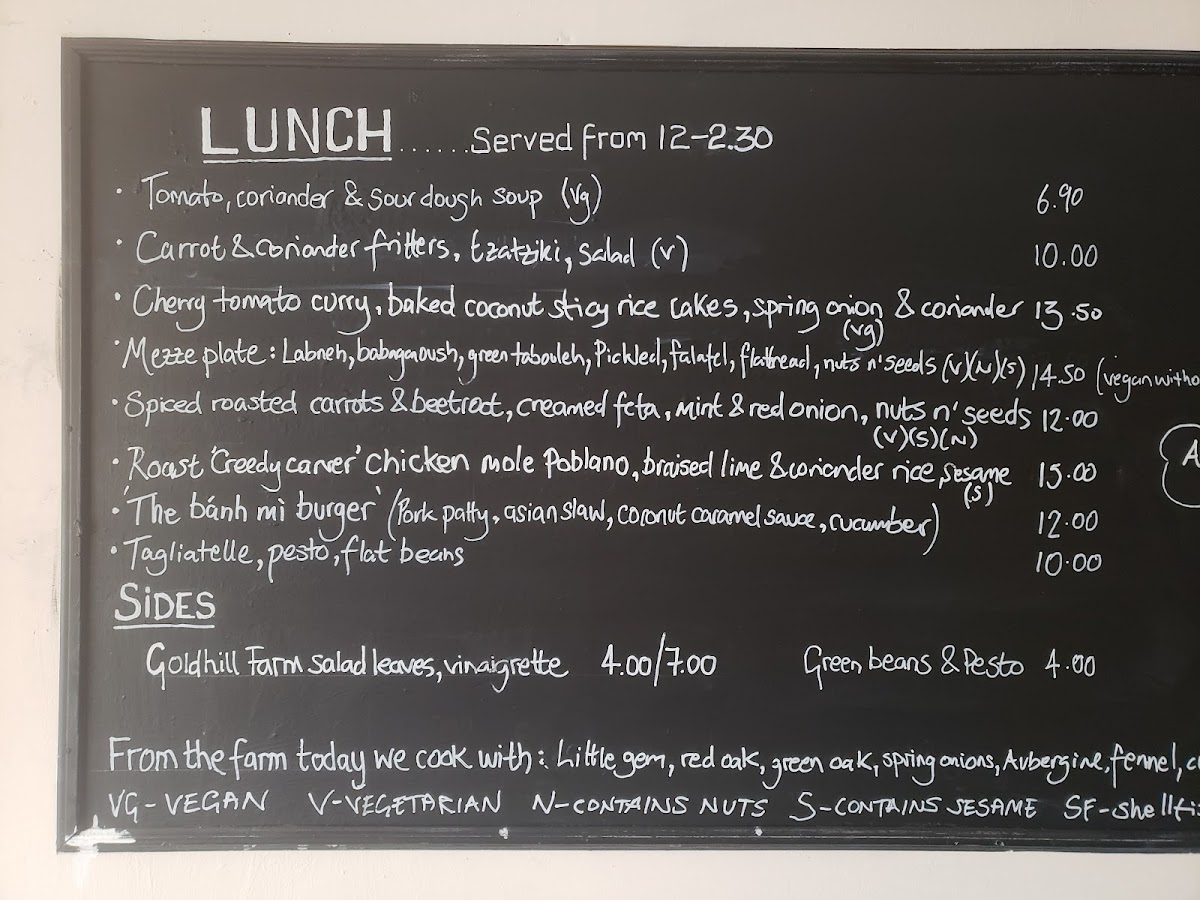 LUNCH ...... Served from 12-2.30
• Tomato, coriander & Sour dough soup (Vg) 6.90
• Carrot & coriander fritters, tzatziki, salad (V) 10.00
• Cherry tomato curry, baked coconut sticy rice cakes, spring onion & coriander 13.50
(vg)
• Mezze plate: Labneh, babaganoush, green tabouleh, Pickled, falafel, flatbread, nuts n' seeds (V)(N)(S) 14.50 (vegan witho
• Spiced roasted carrots & beetroot, creamed feta, mint & red onion, nuts n' seeds 12.00
(V)(S)(N)
• Roast 'Creedy carver' chicken mole Poblano, braised lime & coriander rice, sesame 15.00
(S)
• 'The bánh mì burger' (Pork patty, asian slaw, coconut caramel sauce, cucumber) 12.00
• Tagliatelle, pesto, flat beans 10.00
SiDES
Goldhill Farm salad leaves, vinaigrette 4.00/7.00 Green beans & Pesto 4.00
From the farm today we cook with: Little gem, red oak, green oak, spring onions, Aubergine, fennel, c
VG-VEGAN V-VEGETARIAN N-CONTAINS NUTS S-CONTAINS SESAME SF-shellfi
A